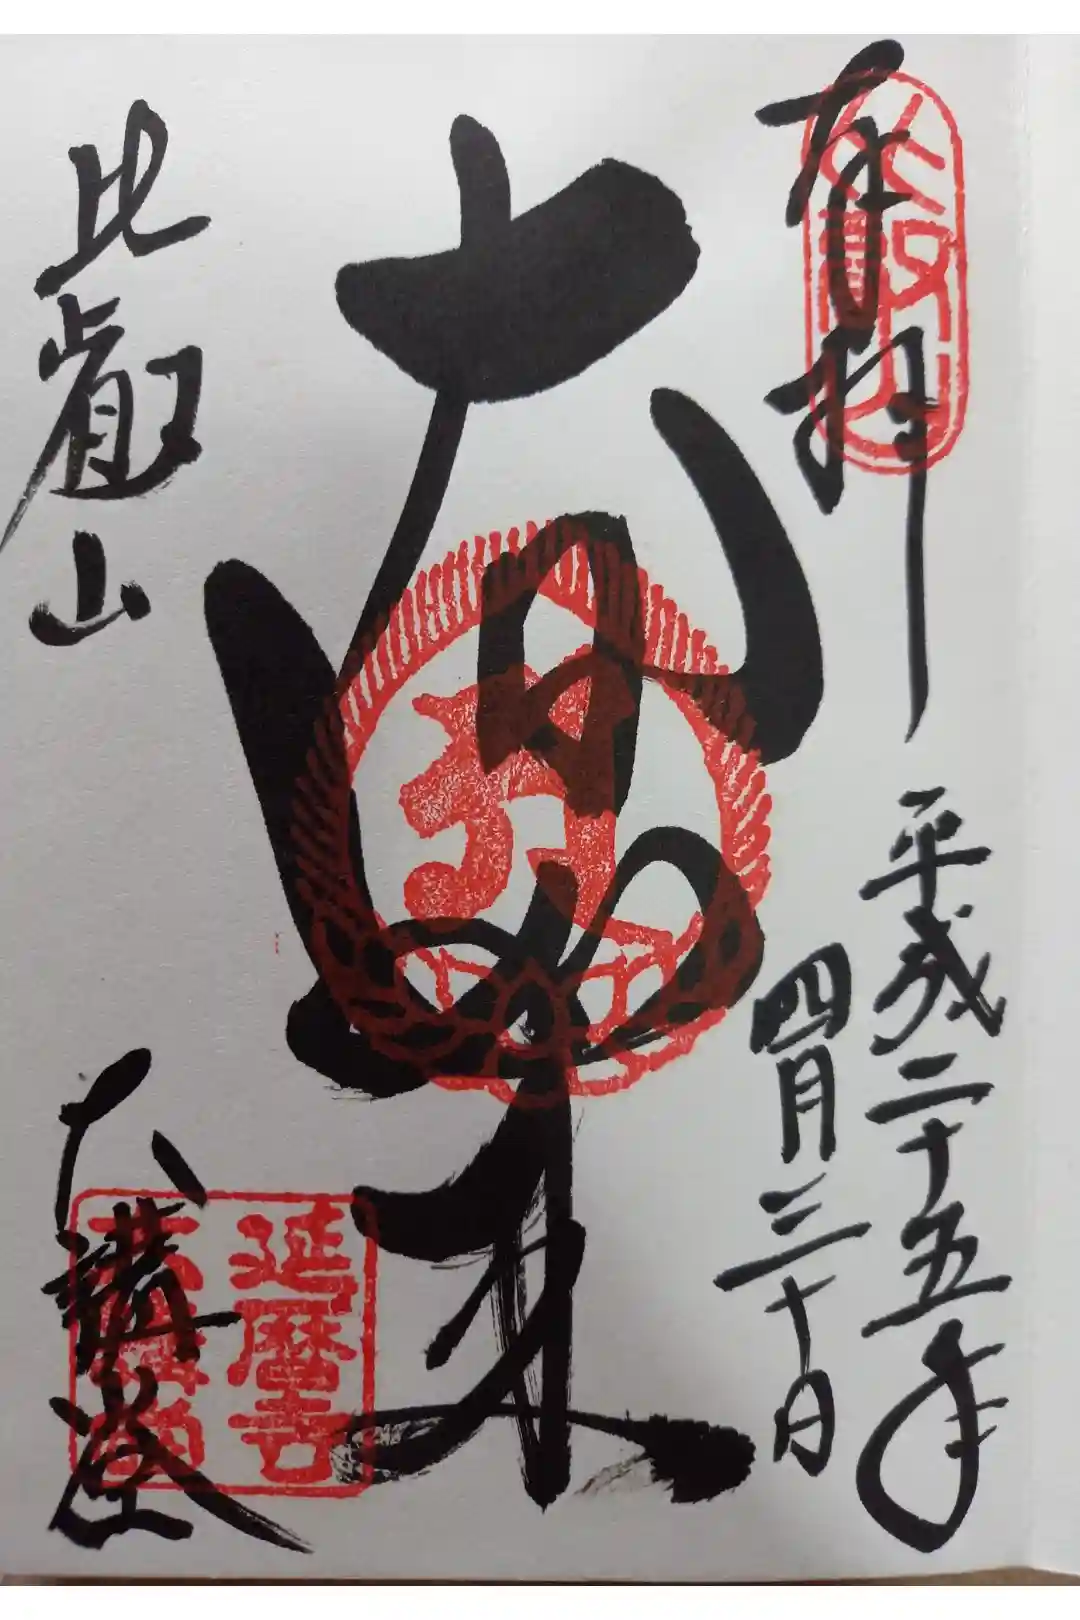 奉拝
比叡山
平成二十五年
四月三十日
大日如来
比叡山
大講堂
延暦寺
大講堂